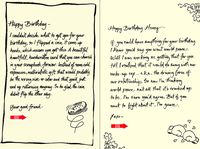 Happy Birthday -
I couldn't decide what to get you for your
birthday, so I flipped a coin, it came up
heads, which means you get this: A beautiful
and heartfelt, handwritten card that you can cherish
in your scrapbook forever instead of some cold,
expensive, materialistic gift that would probably
be the wrong size or color and that you'd just
end up returning anyway. So be glad the coin
didn't flip the other way.
Your good friend -
Happy Birthday Honey -
If you could have anything for your birthday
I know you'd say you want world peace.
Well I am working on getting that for you
but I realized that I could be doing with our
make-up sex - a.k.a. the driving form of
our relationship. So now I'm thinking
world peace, not all that it's cracked up
to be. I'm sure you'd agree. But if you
want to fight about it, I'm game.